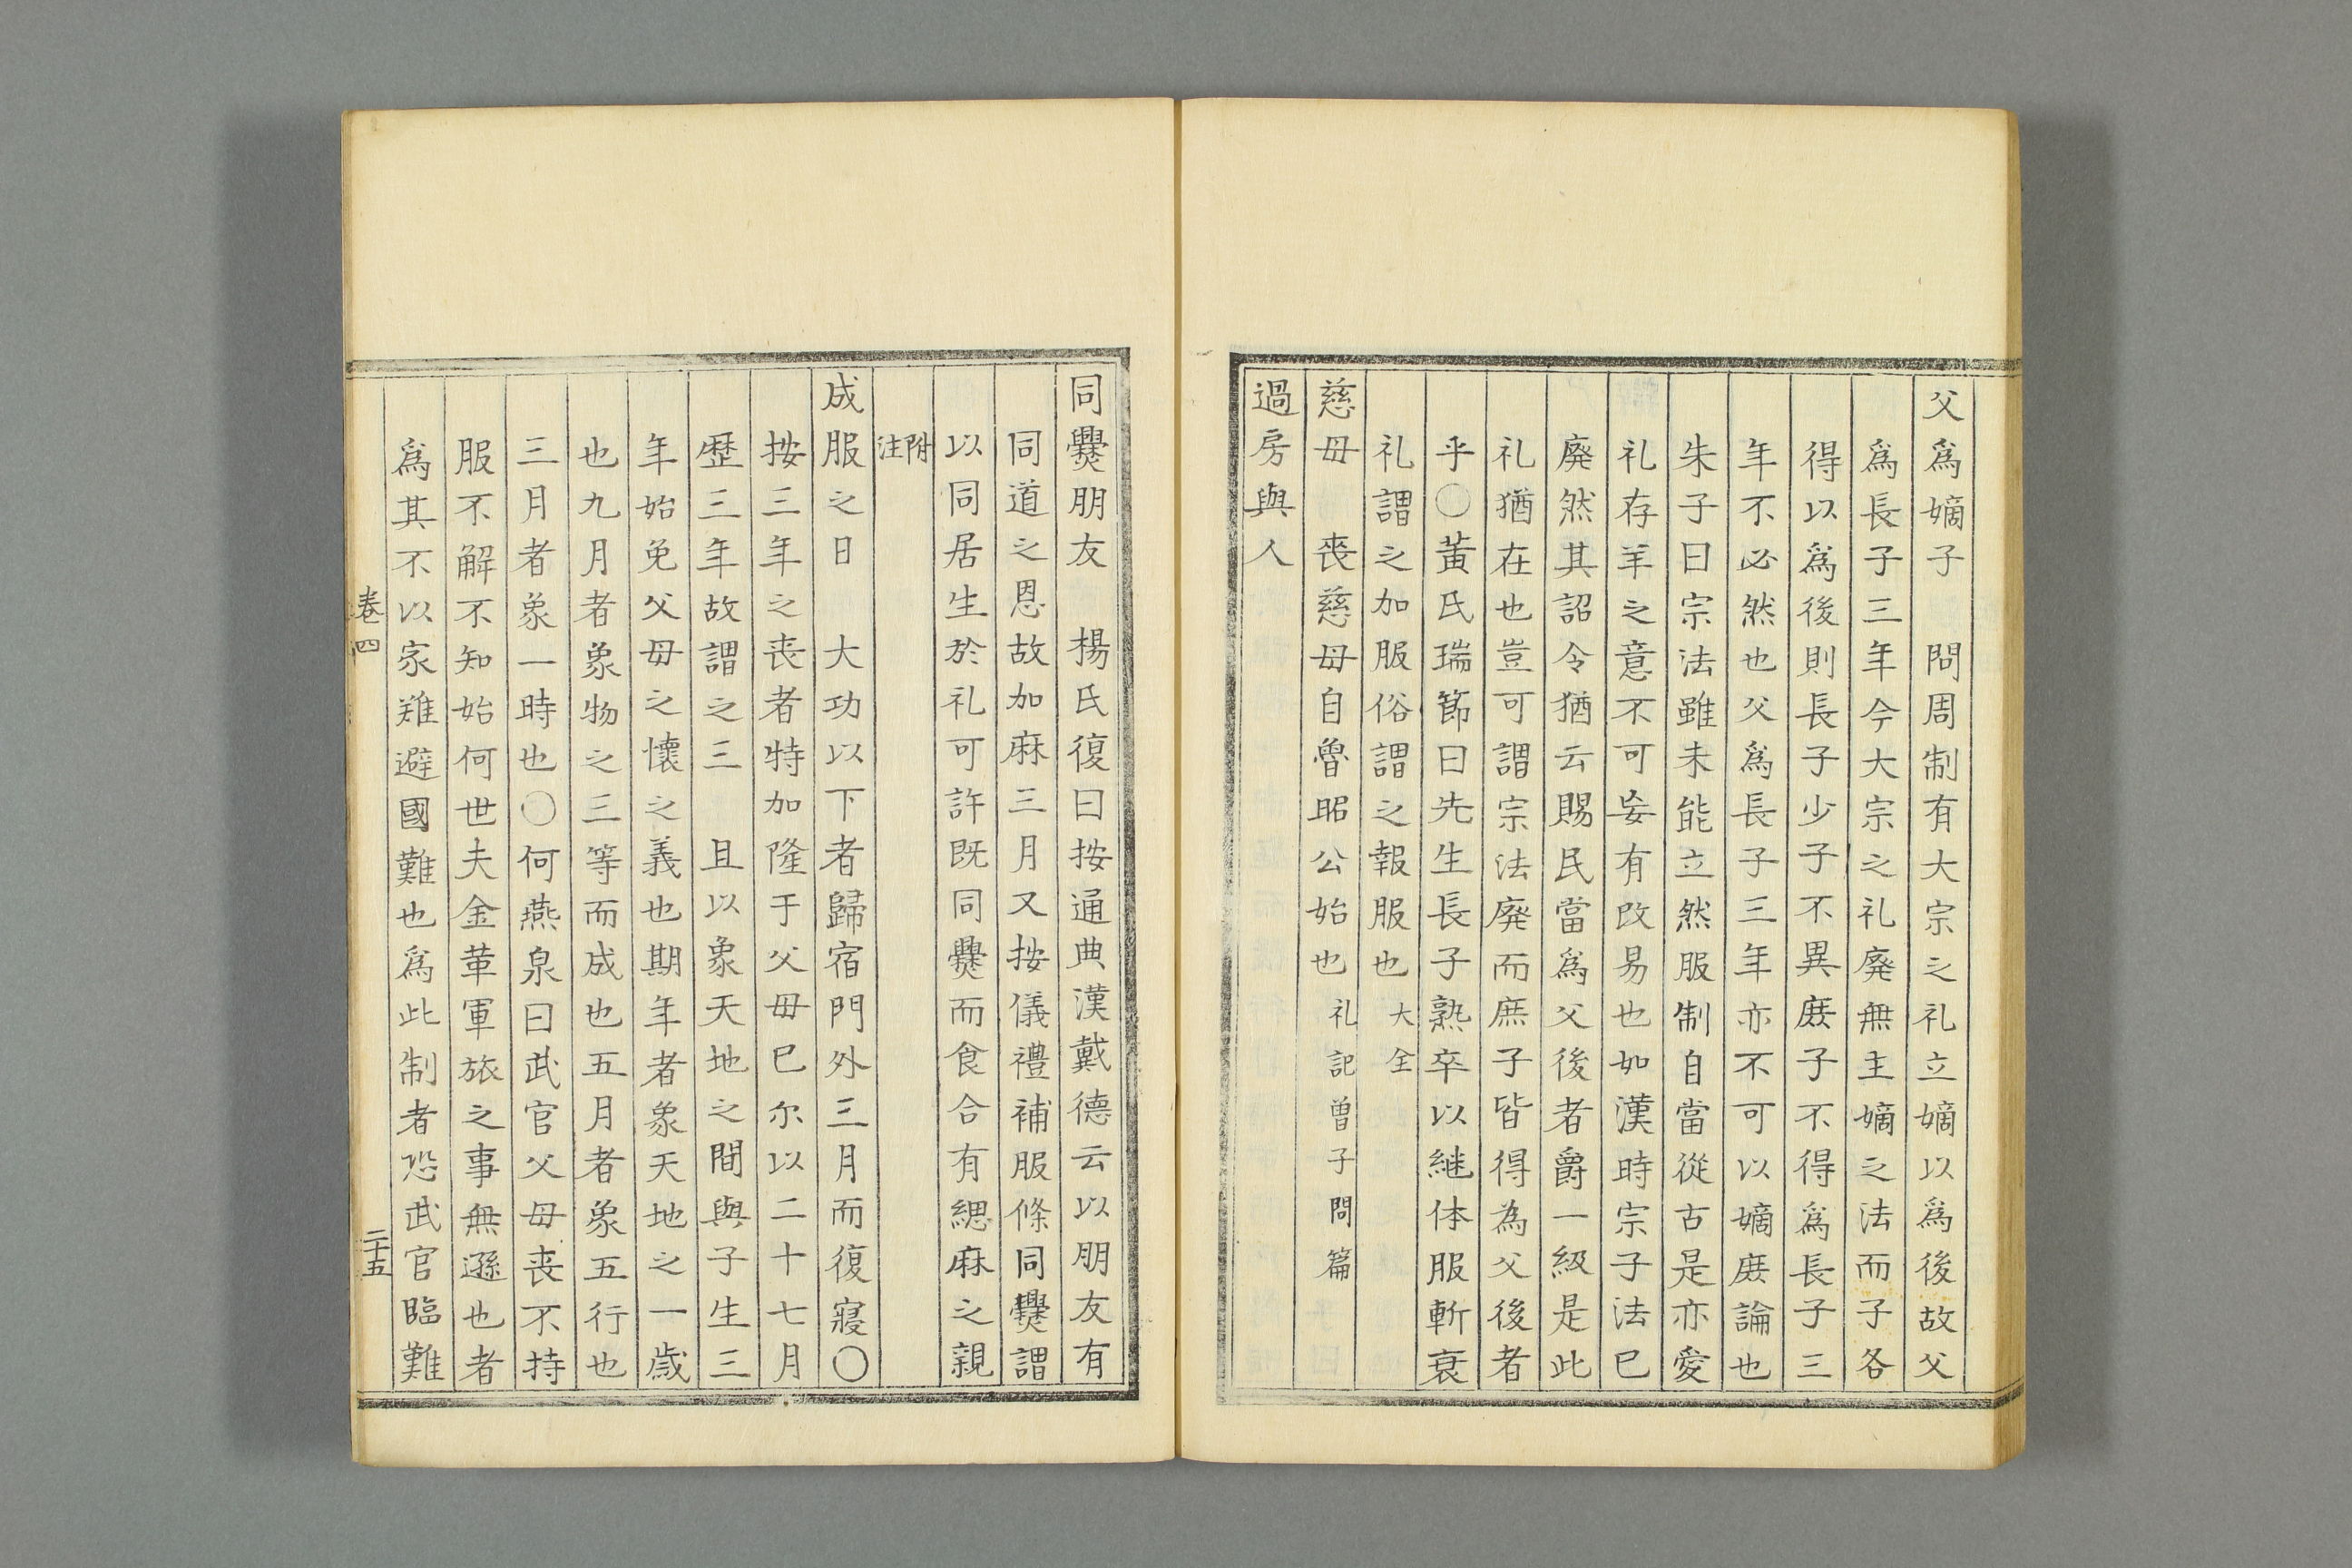 父爲嫡子 問周制有大宗之礼立嫡以爲後故父
爲長子三年今大宗之礼廢無主嫡之法而子各
得以爲後則長子少子不異庶子不得爲長子三
年不必然也父爲長子三年亦不可以嫡庶論也
朱子曰宗法雖未能立然服制自當從古是亦愛
礼存羊之意不可妄有改易也如漢時宗子法已
廢然其詔令猶云賜民當爲父後者爵一級是此
礼猶在也豈可謂宗法廢而庶子皆得為父後者
乎〇黃氏瑞節曰先生長子熟卒以継体服斬衰
礼謂之加服俗謂之報服也 大全
慈母 喪慈母自魯昭公始也 礼記曾子問篇
過房與人
同爨朋友 楊氏復曰按通典漢戴德云以朋友有
同道之恩故加麻三月又按儀禮補服條同爨謂
以同居生於礼可許既同爨而食合有緦麻之親
附注
成服之日 大功以下者歸宿門外三月而復寢〇
按三年之喪者特加隆于父母已尔以二十七月
歷三年故謂之三 且以象天地之間與子生三
年始免父母之懷之義也期年者象天地之一歲
也九月者象物之三等而成也五月者象五行也
三月者象一時也〇何燕泉曰武官父母喪不持
服不解不知始何世夫金革軍旅之事無遜也者
爲其不以家难避國難也爲此制者恐武官臨難
卷四
二十五